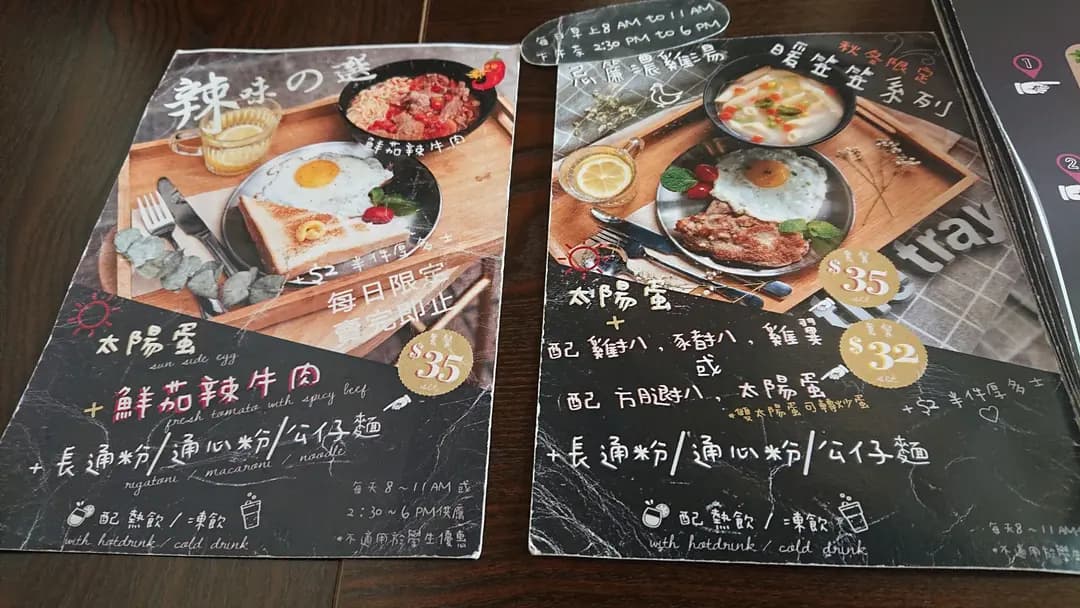 辣味の選
鮮茄辣牛肉
+$2 半件厚多士
每日限定
賣完即止
套餐
$35
set
太陽蛋
sun side egg
+ 鮮茄辣牛肉
fresh tomato with spicy beef
+ 長通粉/通心粉/公仔麵
rigatoni / macaroni / noodle
配 熱飲 / 凍飲
with hotdrink / cold drink
每天 8~11AM 或
2:30~6PM供應
*不適用於學生優惠
每日早上8AM to 11AM
下午茶 2:30 PM to 6 PM
秋冬限定
暖笠笠系列
濃雞湯
tray
套餐
$35
set
太陽蛋
+
配 雞扒,豬扒,雞翼
套餐
$32
set
或
配 方腿扒,太陽蛋
*雙太陽蛋可轉炒蛋
+$2 半件厚多士
+長通粉/通心粉/公仔麵
配 熱飲 / 凍飲
with hotdrink / cold drink
每天8~11AM
*不適用於學生
1
2